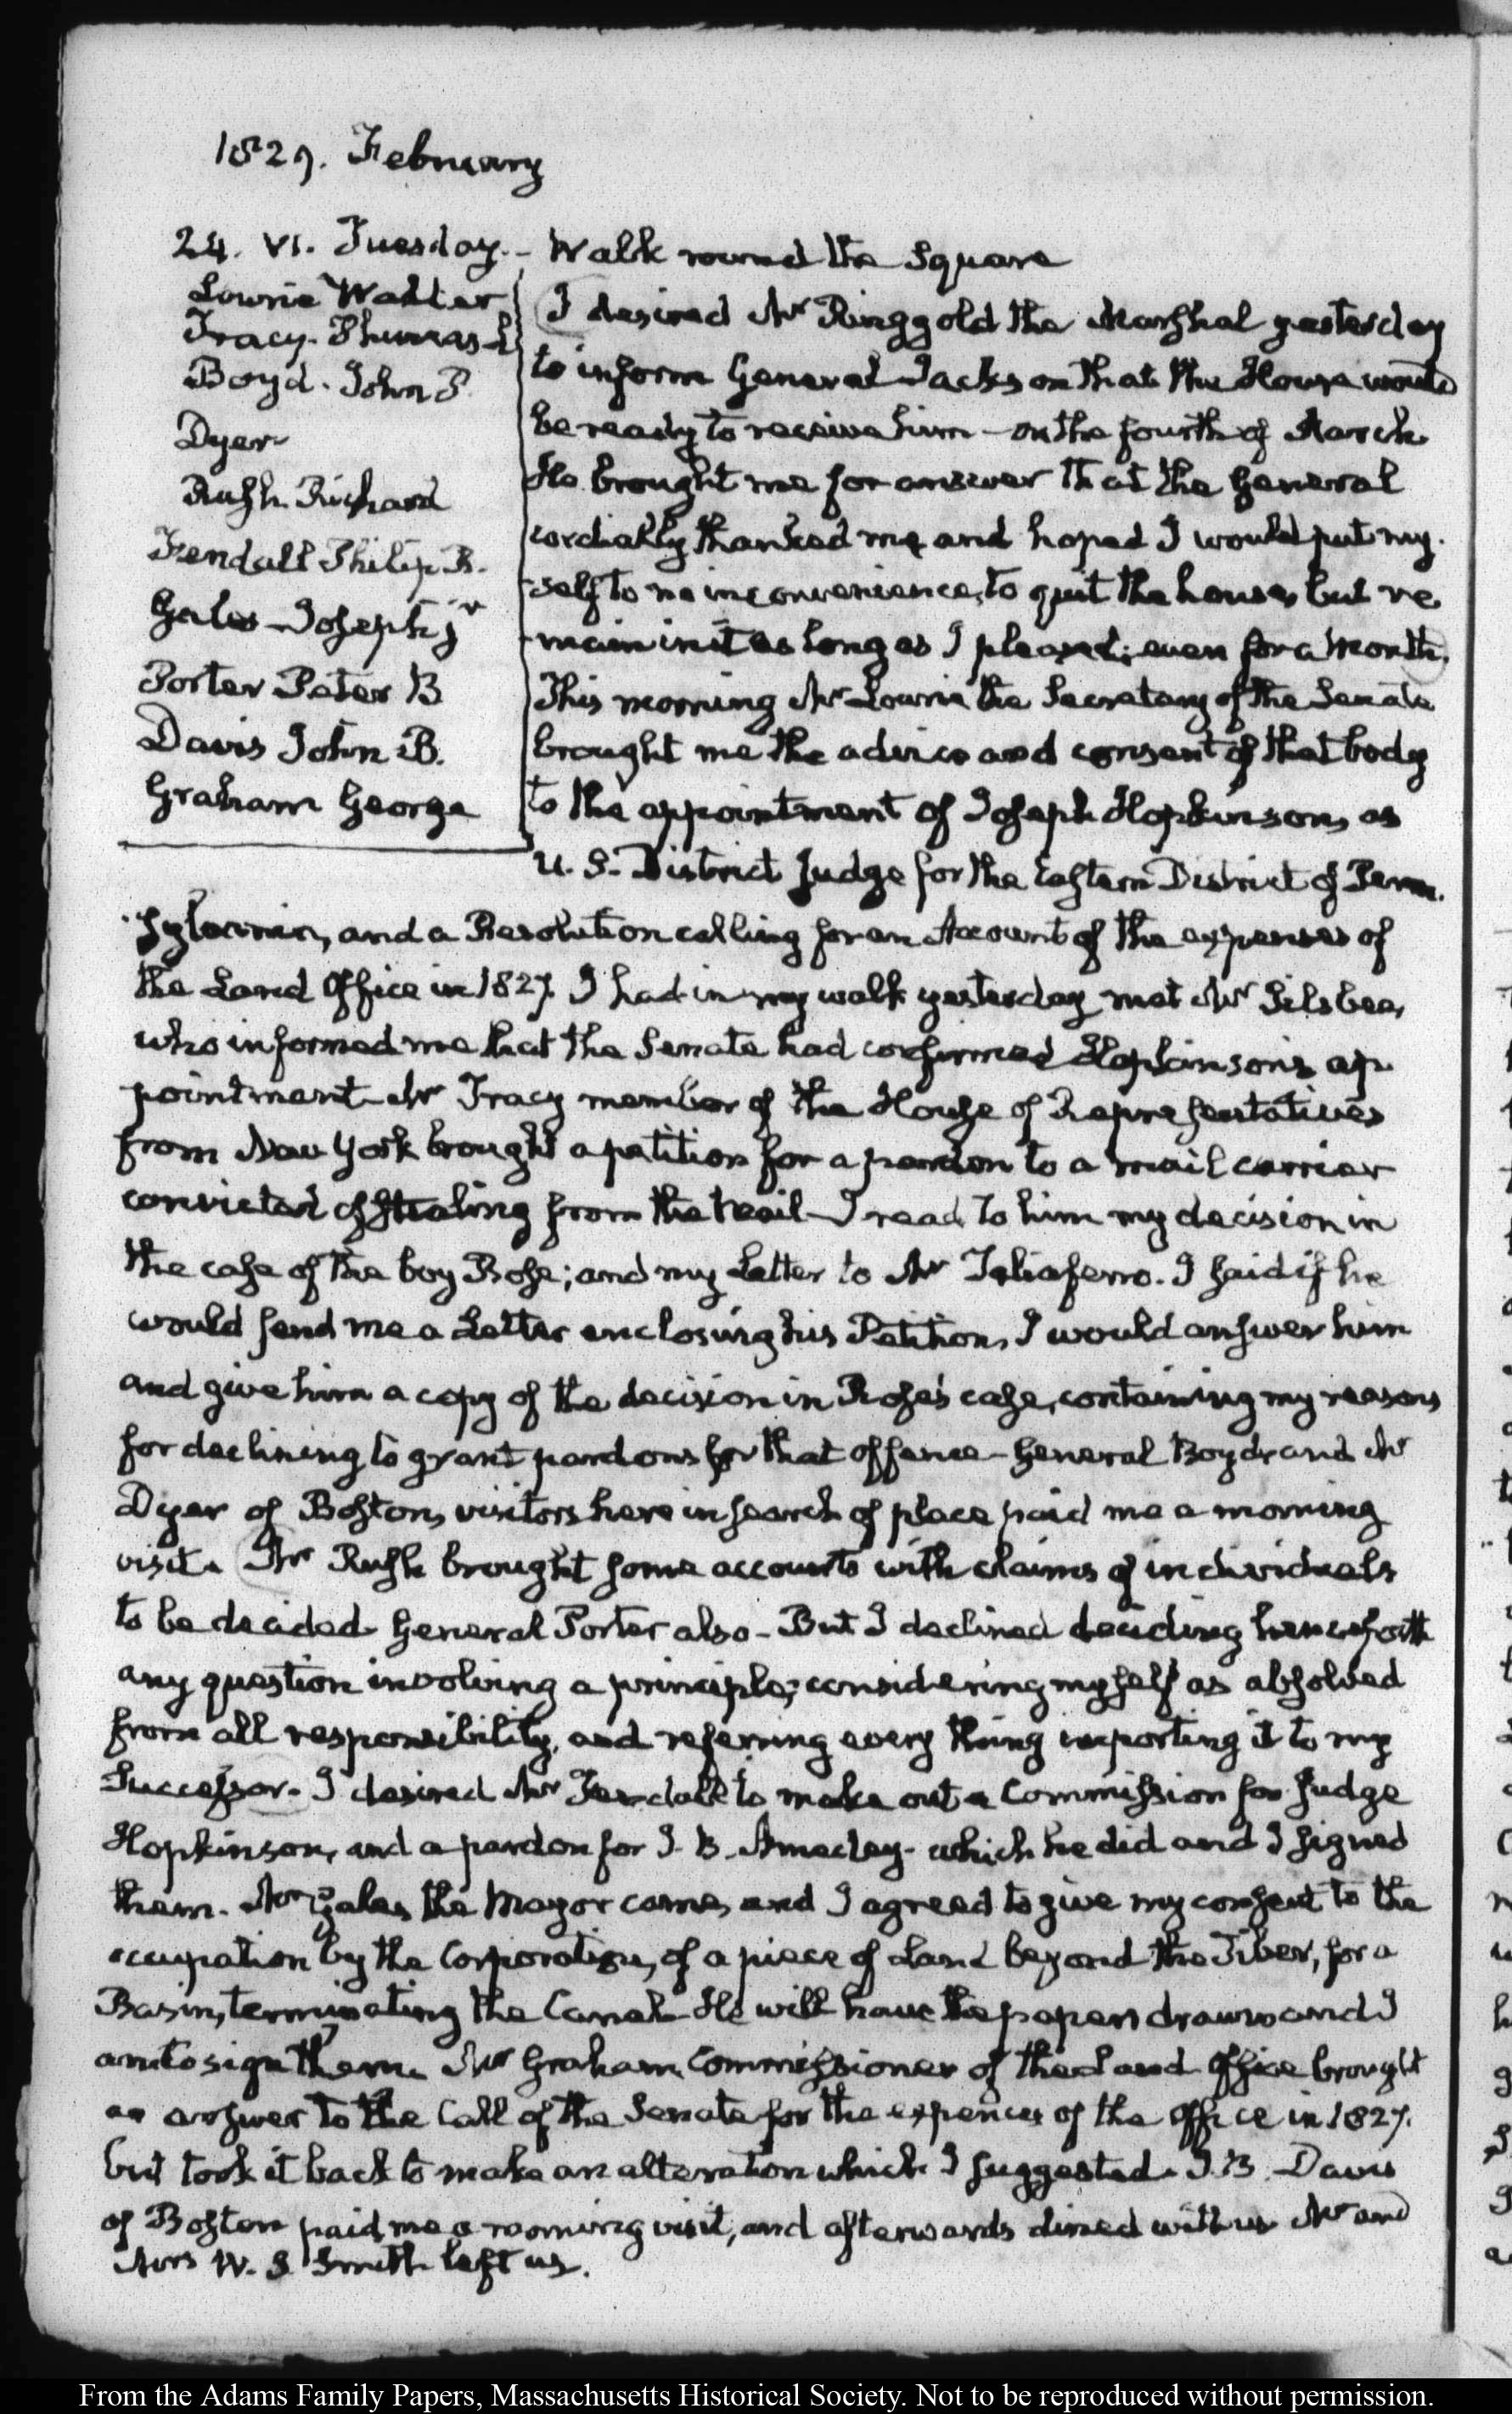 1829. February
24. VI. Tuesday. - Walk round the Square
Lowrie Walter
Tracy. Phineas L
Boyd. John P.
Dyer
Rush. Richard
Fendall Philip R.
Gales Joseph jr
Porter Peter B
Davis John B.
Graham George
I desired Mr Ringgold the Marshal yesterday
to inform General Jackson that the House would
be ready to receive him - on the fourth of March
He brought me for answer that the General
cordially thanked me and hoped I would put my-
self to no inconvenience, to quit the house, but re-
-main in it as long as I pleased; even for a Month.
This morning Mr Lowrie the Secretary of the Senate
brought me the advice and consent of that body
to the appointment of Joseph Hopkinson, as
U. S. District Judge for the Eastern District of Penn-
-sylvania, and a Resolution calling for an Account of the expenses of
the Land Office in 1827. I had in my walk yesterday met Mr Silsbee,
who informed me that the Senate had confirmed Hopkinson's ap-
pointment - Mr Tracy member of the House of Representatives
from New York brought a petition for a pardon to a mail carrier
convicted of stealing from the Mail - I read to him my decision in
the case of the boy Rose; and my Letter to Mr Taliaferro. I said if he
would send me a Letter enclosing his Petition, I would answer him
and give him a copy of the decision in Rose's case, containing my reasons
for declining to grant pardons for that offence - General Boyd and Mr
Dyer of Boston, visitors here in search of place paid me a morning
visit. Mr Rush brought some accounts with claims of individuals
to be decided General Porter also - But I declined deciding henceforth
any question involving a principle; considering myself as absolved
from all responsibility, and referring every thing importing it to my
Successor. I desired Mr Fendall to make out a Commission for Judge
Hopkinson, and a pardon for J. B. Amaday - which he did and I signed
them. Mr Gales the Mayor came, and I agreed to give my consent to the
occupation by the Corporation, of a piece of Land beyond the Tiber, for a
Basin, terminating the Canal - He will have the papers drawn and I
am to sign them. Mr Graham Commissioner of the Land Office brought
an answer to the Call of the Senate for the expences of the Office in 1827.
but took it back to make an alteration which I suggested. J. B. Davis
of Boston paid me a morning visit, and afterwards dined with us Mr and
Mrs W. S. Smith left us.
From the Adams Family Papers, Massachusetts Historical Society. Not to be reproduced without permission.